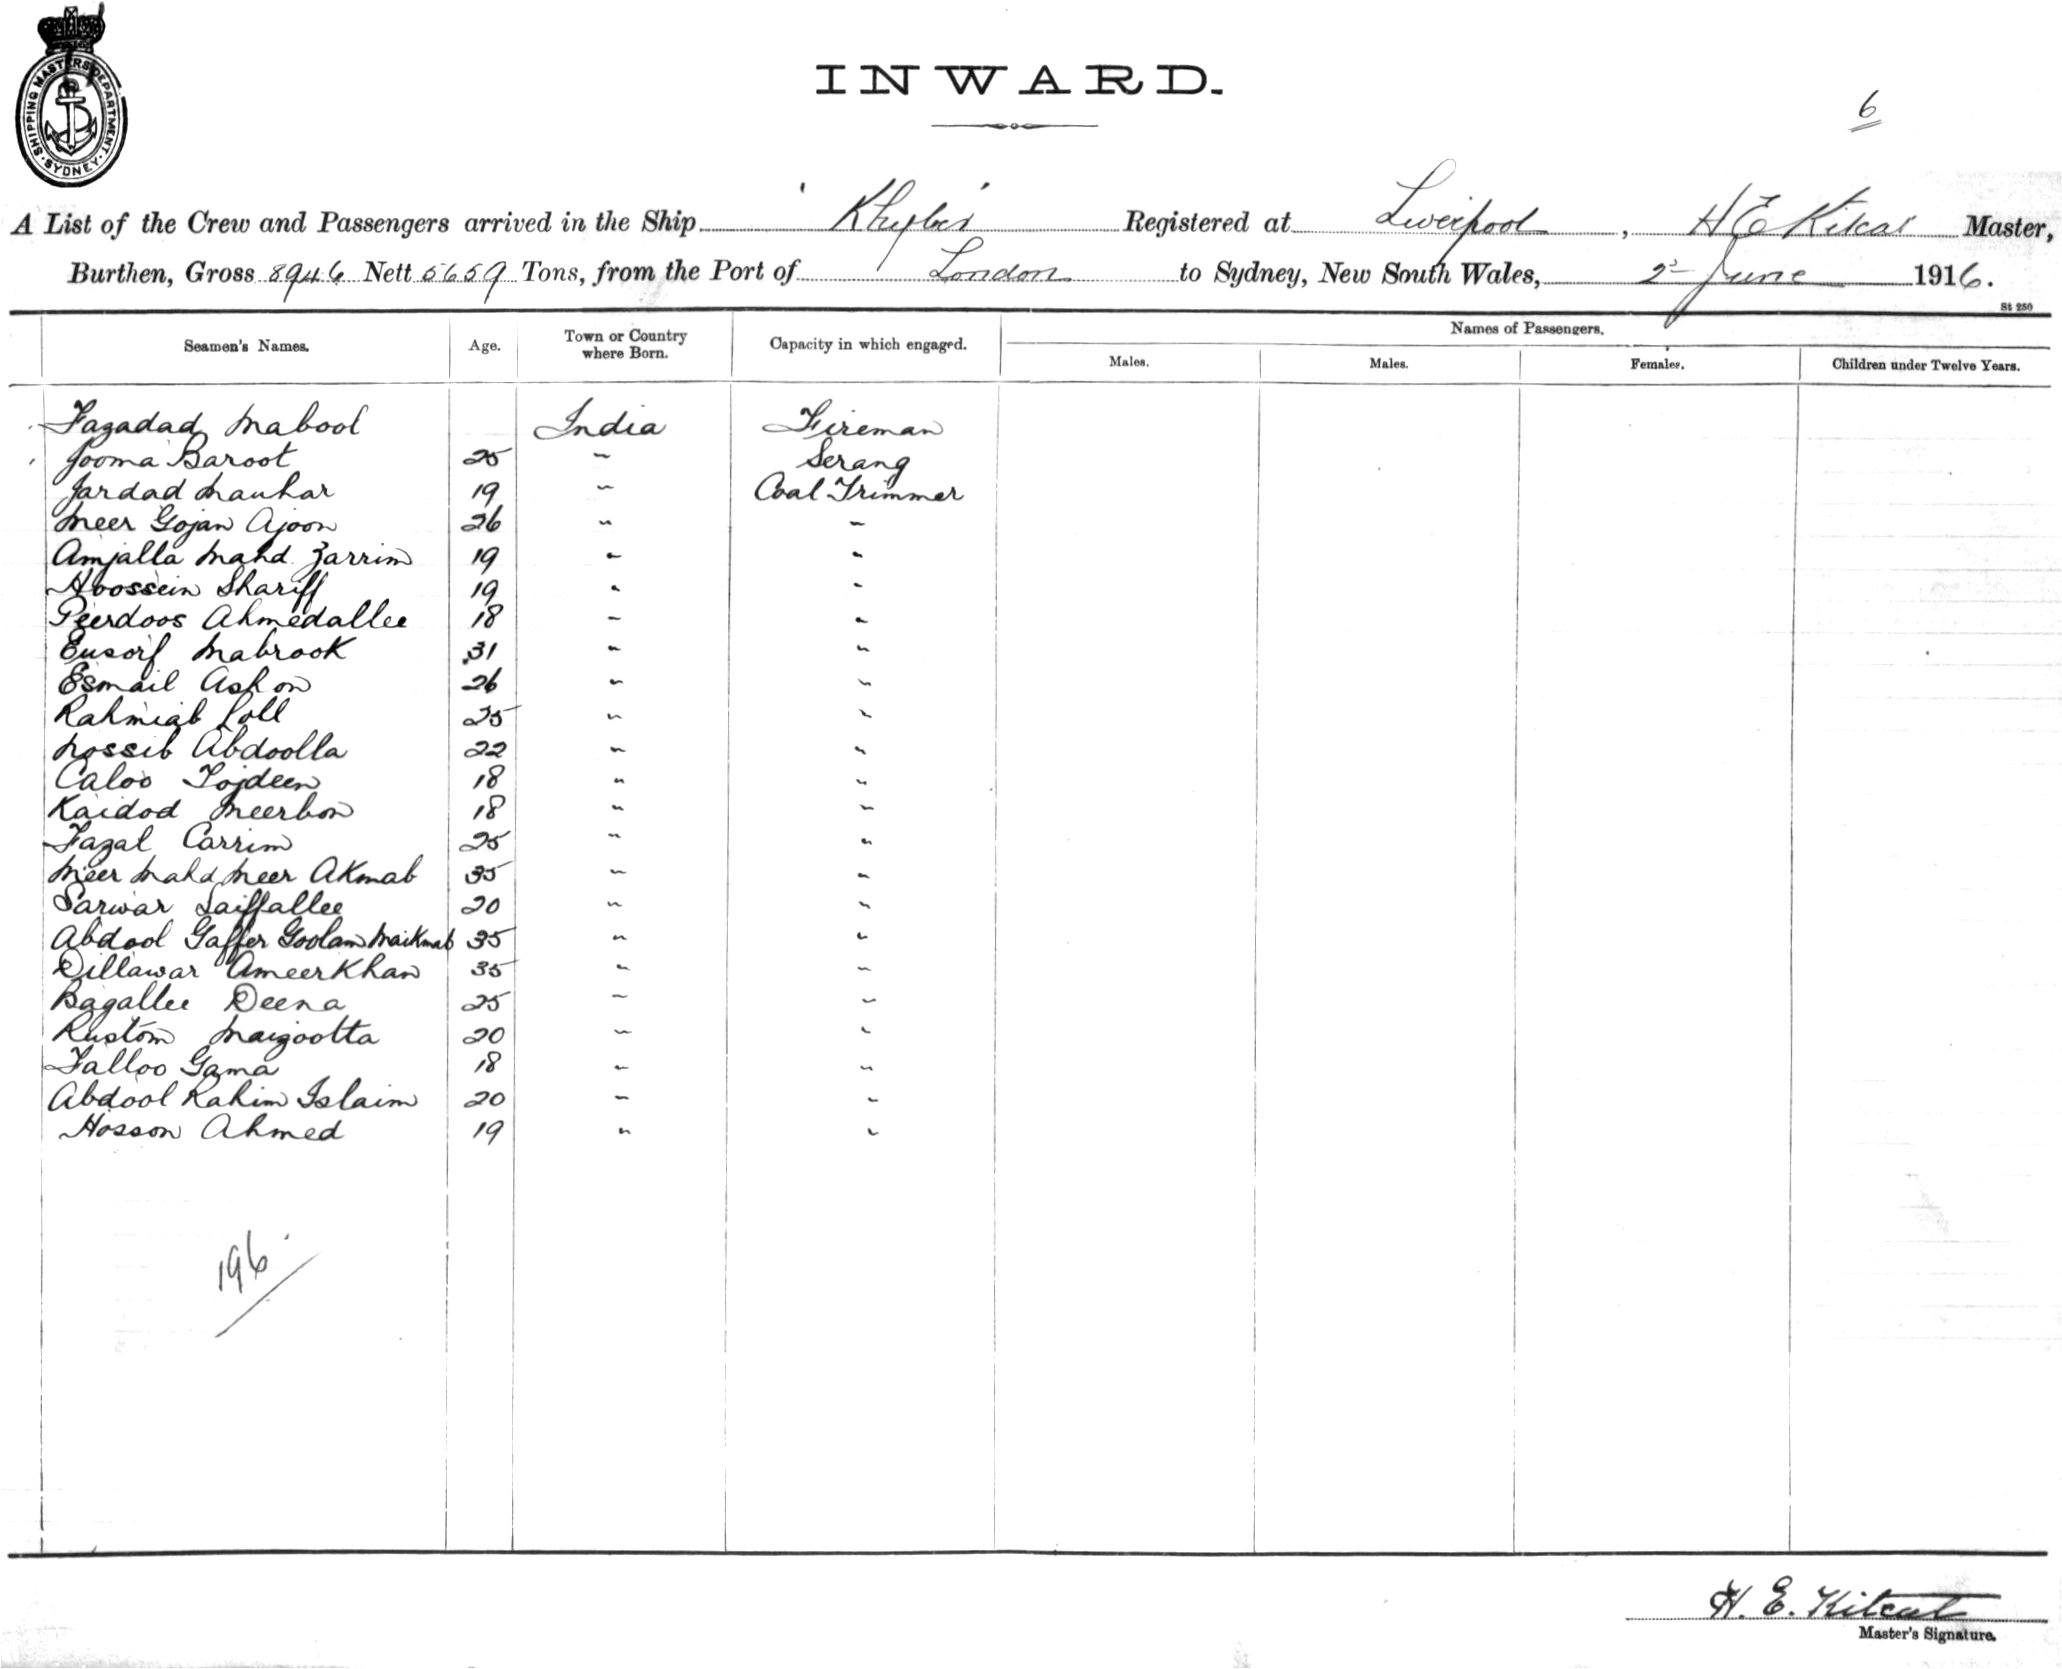 SHIPPING MASTERS DEPARTMENT · SYDNEY ·
INWARD.
6
A List of the Crew and Passengers arrived in the Ship 'Khyber' Registered at Liverpool, H E Kitcat Master,
Burthen, Gross 8946 Nett 5659 Tons, from the Port of London to Sydney, New South Wales, 2 June 1916.
St 250
Seamen's Names. Age. Town or Country where Born. Capacity in which engaged. Names of Passengers.
Males. Males. Females. Children under Twelve Years.
Fazadad Mabool India Fireman
Jooma Baroot 25 " Serang
Jardad Mauhar 19 " Coal Trimmer
Meer Gojan Ajoon 26 " "
Amjalla Mahd Zarrim 19 " "
Hoossein Shariff 19 " "
Peerdoos Ahmedallee 18 " "
Eusoif Mabrook 31 " "
Esmail Ashon 26 " "
Rahmiab Loll 25 " "
Nossib Abdoolla 22 " "
Caloo Fojdeen 18 " "
Kaidod Meerbon 18 " "
Fazal Carrim 25 " "
Meer Mahd Meer Akmab 35 " "
Sarwar Saiffallee 20 " "
Abdool Gaffer Goolam Maikmab 35 " "
Dillawar Ameerkhan 35 " "
Bagallee Deena 25 " "
Rustom Maigootta 20 " "
Falloo Gama 18 " "
Abdool Rahim Islaim 20 " "
Hosson Ahmed 19 " "
196
H. E. Kitcat
Master's Signature.